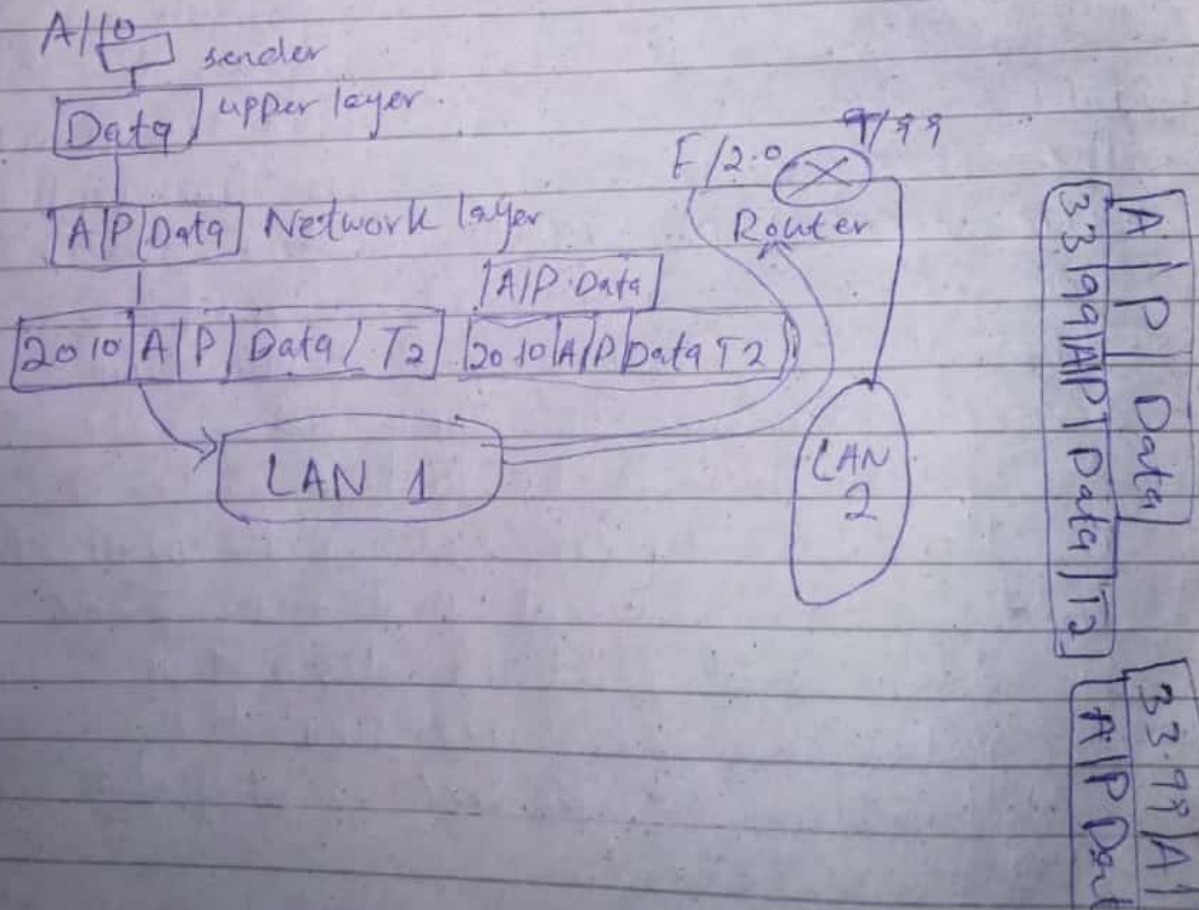 A/10
sender
Data upper layer.
F/20
/99
A|P|Data Network layer
Router
A|P Data
20 10 A|P|Data/ T2
20 10|A|P|Data T2
LAN 1
LAN
2
A|P|Data
33|99|A|P|Data|T2
33.99|A
A|P